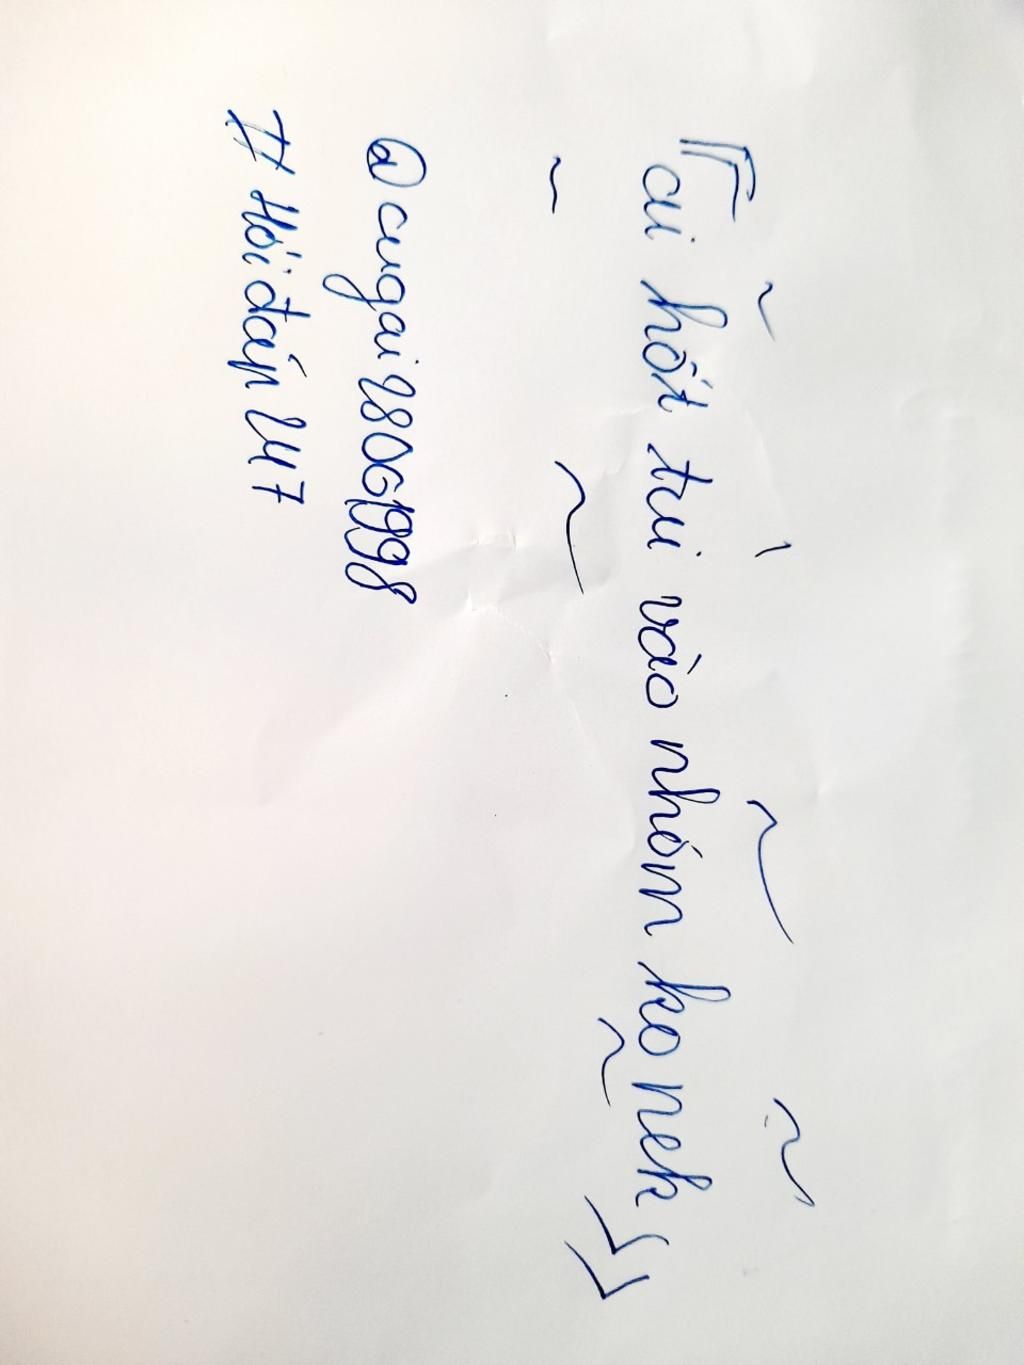 『ai hốt tui vào nhóm ko nek』
@cugai28061998
#Hỏi đáp 247